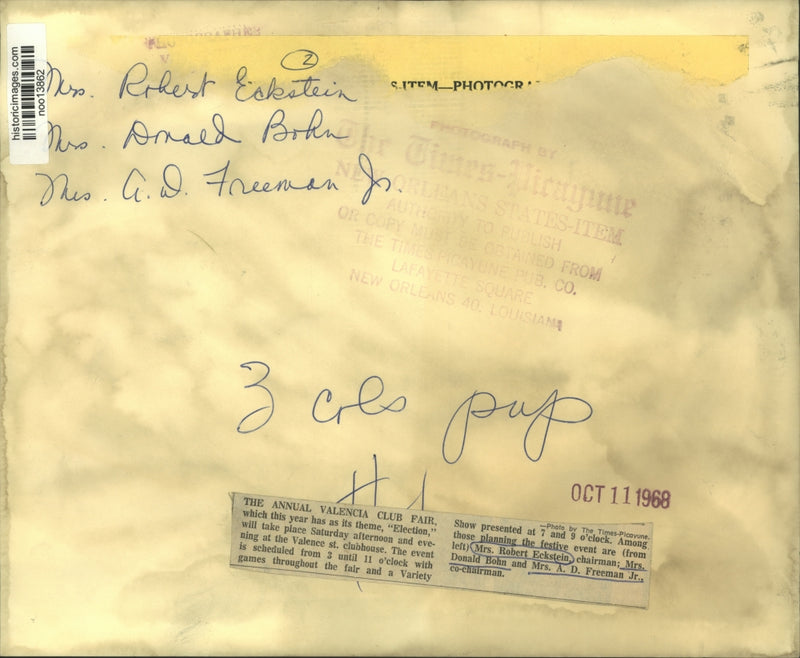 historicimages.com
noo13862
2
S-ITEM—PHOTOGRA
Mrs. Robert Eckstein
Mrs. Donald Bohn
Mrs. A. D. Freeman Jr.
PHOTOGRAPH BY
The Times-Picayune
NEW ORLEANS STATES-ITEM
AUTHORITY TO PUBLISH
OR COPY MUST BE OBTAINED FROM
THE TIMES PICAYUNE PUB. CO.
LAFAYETTE SQUARE
NEW ORLEANS 40, LOUISIANA
3 cols pup
OCT 11 1968
THE ANNUAL VALENCIA CLUB FAIR,
which this year has as its theme, “Election,”
will take place Saturday afternoon and eve-
ning at the Valence st. clubhouse. The event
is scheduled from 3 until 11 o'clock with
games throughout the fair and a Variety
—Photo by The Times-Picayune.
Show presented at 7 and 9 o'clock. Among
those planning the festive event are (from
left) Mrs. Robert Eckstein, chairman; Mrs.
Donald Bohn and Mrs. A. D. Freeman Jr.,
co-chairman.